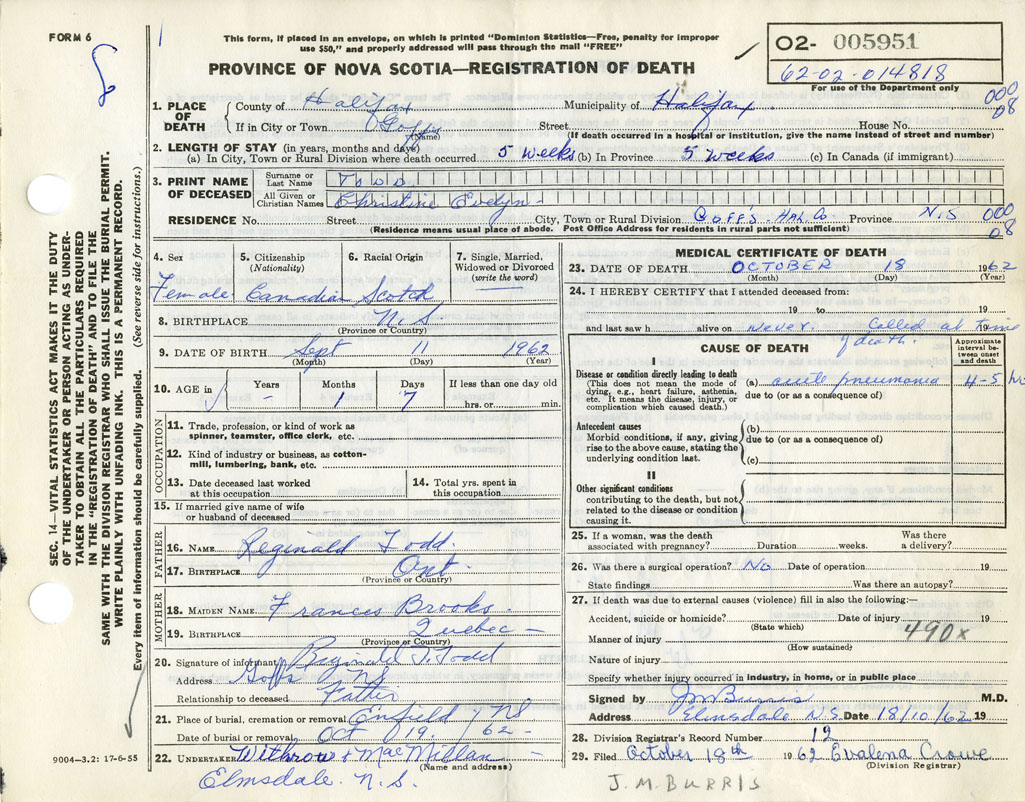 FORM 6
8
1
This form, if placed in an envelope, on which is printed "Dominion Statistics—Free, penalty for improper
use $50," and properly addressed will pass through the mail "FREE"
PROVINCE OF NOVA SCOTIA—REGISTRATION OF DEATH
02- 005951
62-02-014818
For use of the Department only
1. PLACE OF DEATH County of Halifax Municipality of Halifax. 000
If in City or Town Goffs Street House No. 08
(Name) (If death occurred in a hospital or institution, give the name instead of street and number)
2. LENGTH OF STAY (in years, months and days)
(a) In City, Town or Rural Division where death occurred 5 weeks (b) In Province 5 weeks (c) In Canada (if immigrant)
3. PRINT NAME OF DECEASED
Surname or Last Name TODD
All Given or Christian Names Christine Evelyn-
RESIDENCE No. Street City, Town or Rural Division GOFF'S - HAL. Co Province N.S 000
(Residence means usual place of abode. Post Office Address for residents in rural parts not sufficient) 08
SEC. 14—VITAL STATISTICS ACT MAKES IT THE DUTY
OF THE UNDERTAKER OR PERSON ACTING AS UNDER-
TAKER TO OBTAIN ALL THE PARTICULARS REQUIRED
IN THE "REGISTRATION OF DEATH" AND TO FILE THE
SAME WITH THE DIVISION REGISTRAR WHO SHALL ISSUE THE BURIAL PERMIT.
WRITE PLAINLY WITH UNFADING INK. THIS IS A PERMANENT RECORD.
Every item of information should be carefully supplied. (See reverse side for instructions.)
4. Sex 5. Citizenship (Nationality) 6. Racial Origin 7. Single, Married, Widowed or Divorced (write the word)
Female Canadian Scotch
8. BIRTHPLACE N.S
(Province or Country)
9. DATE OF BIRTH Sept 11 1962
(Month) (Day) (Year)
10. AGE in Years Months Days If less than one day old
- 1 7 hrs. or min.
OCCUPATION
11. Trade, profession, or kind of work as
spinner, teamster, office clerk, etc.
12. Kind of industry or business, as cotton-
mill, lumbering, bank, etc.
13. Date deceased last worked at this occupation
14. Total yrs. spent in this occupation
15. If married give name of wife
or husband of deceased
FATHER
16. NAME Reginald Todd.
17. BIRTHPLACE Ont
(Province or Country)
MOTHER
18. MAIDEN NAME Frances Brooks -
19. BIRTHPLACE Quebec -
(Province or Country)
20. Signature of informant Reginald J. Todd
Address Goffs NS
Relationship to deceased Father
21. Place of burial, cremation or removal Enfield NS
Date of burial or removal Oct 19. 62-
22. UNDERTAKER Withrow & MacMillan
(Name and address)
Elmsdale. N.S.
9004—3.2: 17-6-55
MEDICAL CERTIFICATE OF DEATH
23. DATE OF DEATH OCTOBER 18 1962
(Month) (Day) (Year)
24. I HEREBY CERTIFY that I attended deceased from:
19 to 19
and last saw h alive on never. Called at time 19
of death.
CAUSE OF DEATH
Approximate interval between onset and death
I
Disease or condition directly leading to death
(This does not mean the mode of
dying, e.g., heart failure, asthenia,
etc. It means the disease, injury, or
complication which caused death.)
(a) acute pneumonia 4-5 hrs
due to (or as a consequence of)
Antecedent causes
Morbid conditions, if any, giving
rise to the above cause, stating the
underlying condition last.
(b)
due to (or as a consequence of)
(c)
II
Other significant conditions
contributing to the death, but not
related to the disease or condition
causing it.
25. If a woman, was the death associated with pregnancy? Duration weeks. Was there a delivery?
26. Was there a surgical operation? No Date of operation 19
State findings Was there an autopsy?
27. If death was due to external causes (violence) fill in also the following:—
Accident, suicide or homicide? Date of injury 19
(State which) 490x
Manner of injury
(How sustained)
Nature of injury
Specify whether injury occurred in industry, in home, or in public place
Signed by J M Burris M.D.
Address Elmsdale N.S. Date 18/10/62 19
28. Division Registrar's Record Number 12
29. Filed October 18th 1962 Evalena Crowe
(Division Registrar)
J.M.BURRIS